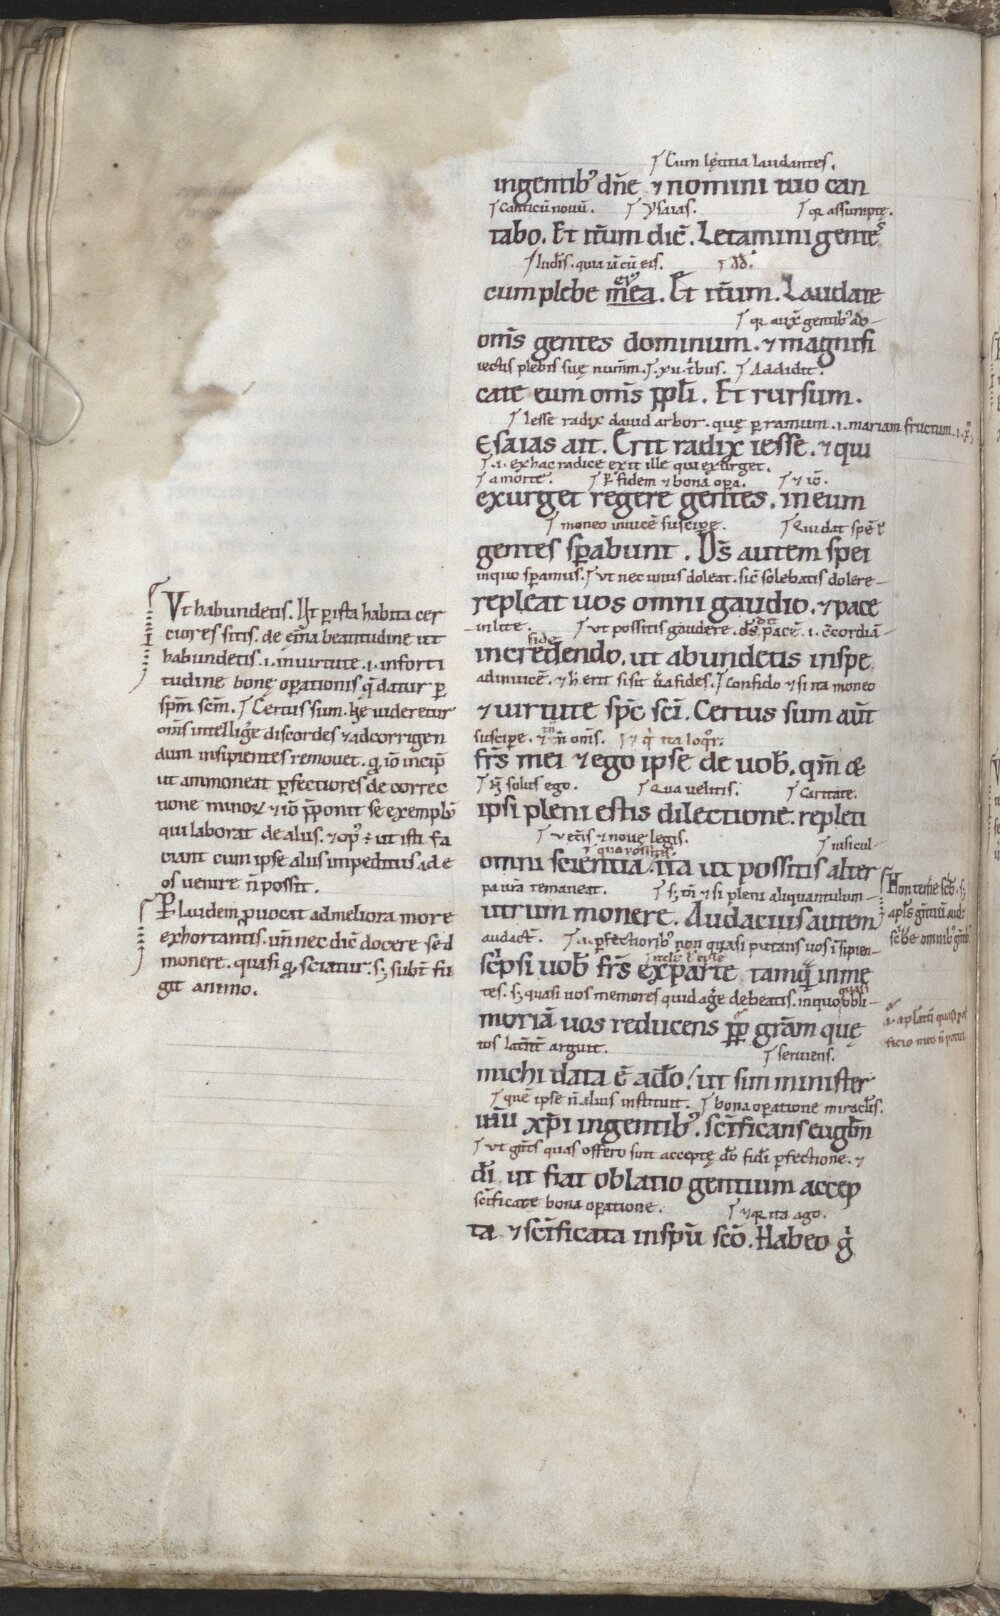 ſ Cum lętitia laudantes.
ingentib᾽ dn̄e ⁊ nomini tuo can
ſ canticū nouū. ſ ysaias. ſ qr assumptę.
tabo. Et itūm dic̄. Letamini gentes
ſ iudīs. quia iā cū eis. ſ dd̄.
cum plebe mēa eius. Et itūm. Laudate
ſ qr aux̄ gentib᾽ ad
om̄s gentes dominum. ⁊ magnifi
iectis plebis suę num̄m. ſ xii. t̄bus. ſ Addidit.
cate eum om̄s ppl̄i. Et rursum.
ſ Iesse radix dauid arbor. quę ꝑ ramum .i. mariam fructum .i. xp̄
Esaias ait. Erit radix iesse. ⁊ qui
ſ .i. ex hac radice exit ille qui exurget.
ſ a morte. ſ ꝑ fidem ⁊ bona oꝑa. ſ ⁊ iō.
exurget regere gentes. in eum
ſ moneo inuicē suscipe. ſ Qui dat spē ł
gentes sꝑabunt. D̄s autem spei
in quo sꝑamus. ſ ut nec unus doleat. sic̄ solebatis dolere
repleat uos omni gaudio. ⁊ pace
in lite. ſ ut possitis gaudere. ds̄ dat pacē .i. c̄cordiā
in credendo fide. ut abundetis in spe
adinuicē. ⁊ h̄ erit si sit ūa fides. ſ confido ⁊ si ita moneo
⁊ uirtute sp̄c sc̄i. Certus sum aūt
suscipe. ⁊ n̄ om̄s. ſ ⁊ q̇ ita loq̄r.
fr̄s mei ⁊ ego ipse de uob̄. qm̄ &
ſ n̄ solus ego. ſ Qua uelitis. ſ Caritate.
ipsi pleni estis dilectione. repleti
ſ uet̄is ⁊ nouę legis. ſ ut scul
omni scientia. ita ut possitis alter
pa ura remaneat. ſ s; tn̄ ⁊ si pleni aliquantulum
utrum monere. Audacius autem
audact̄. ſ .i. ꝑfectiorib᾽ non quasi putans uos īsipien
sc̄psi uob̄ fr̄s ex parte tamq̄ in me
tes. s; quasi uos memores quid aḡe debeatis. in quo quasi obli
moriā uos reducens ꝓpt̄ grām quę
tos latent̄ arguit. ſ seruiens.
michi data ē a dō. ut sim minister
ſ quē ipse n̄ alius instituit. ſ bona oꝑatione miraclis.
ihū xp̄i in gentib᾽. sc̄ificans eugl̄m
ſ ut gn̄tes quas offero sint acceptę dō fidi ꝑfectione. ⁊
dī. ut fiat oblatio gentium accep
sc̄ificate bona oꝑatione. ſ ⁊ qr ita ago.
ta ⁊ sc̄ificata in spū scō. Habeo ḡ
Vt habundetis. Ut ꝑ ista habita cer
tiores sitis. de et̄na beatitudine ut
habundetis .i. in uirtute .i. in forti
tudine bonę oꝑationis q̄ datur ꝑ
spm̄ scm̄. ſ Certus sum. Ne uideretur
om̄s intelliḡe discordes ⁊ ad corrigen
dum insipientes remouet. q iō incip̄
ut ammoneat ꝑfectiores de correc
tione minoꝝ ⁊ iō p̄ponit se exemplū
qui laborat de aliis. ⁊ op᾽ ē ut isti fa
ciant cum ipse aliis impeditus ad e
os uenire n̄ possit.
Eluidem ꝓuocat ad meliora more
exhortantis. un̄ nec dic̄ docere sed
monere. quasi q sciatur. s; subt̄ fu
git animo.